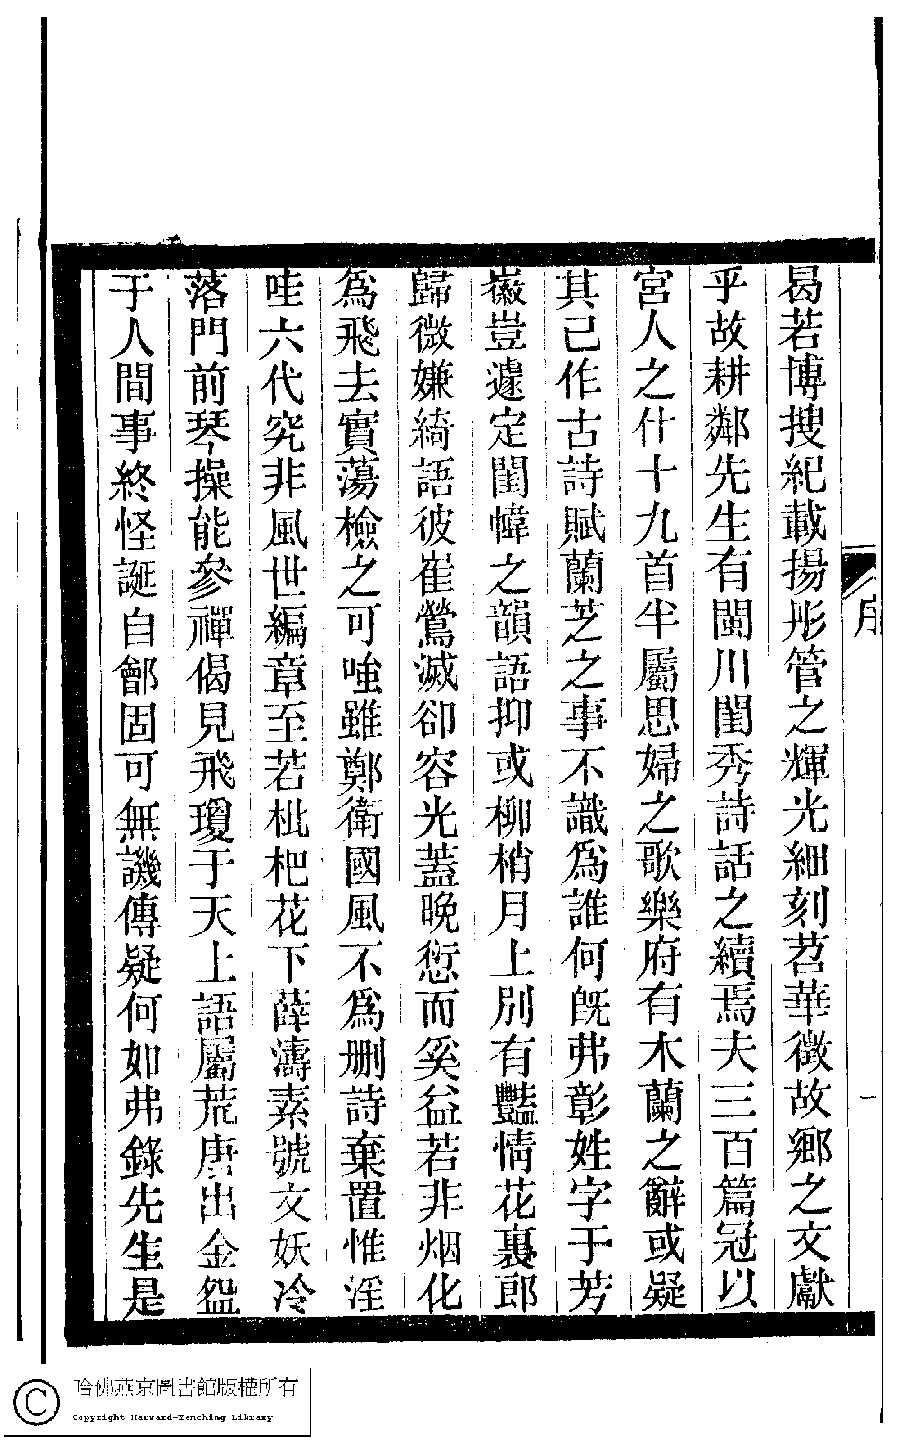 曷若博搜紀載揚彤管之輝光細刻苕華徵故鄉之文獻
乎故耕鄰先生有閩川閨秀詩話之續焉夫三百篇冠以
宮人之什十九首半屬思婦之歌樂府有木蘭之辭或疑
其己作古詩賦蘭芝之事不識爲誰何旣弗彰姓字于芳
徽豈遽定閨幃之韻語抑或柳梢月上別有豔情花裏郎
歸微嫌綺語彼崔鶯滅卻容光蓋晚愆而奚益若非烟化
爲飛去實蕩檢之可嗤雖鄭衛國風不爲刪詩棄置惟淫
哇六代究非風世編章至若枇杷花下薛濤素號文妖冷
落門前琴操能參禪偈見飛瓊于天上語屬荒唐出金盌
于人間事終怪誕自鄶固可無譏傳疑何如弗錄先生是
序
一
哈佛燕京圖書館版權所有
Copyright Harvard-Yenching Library